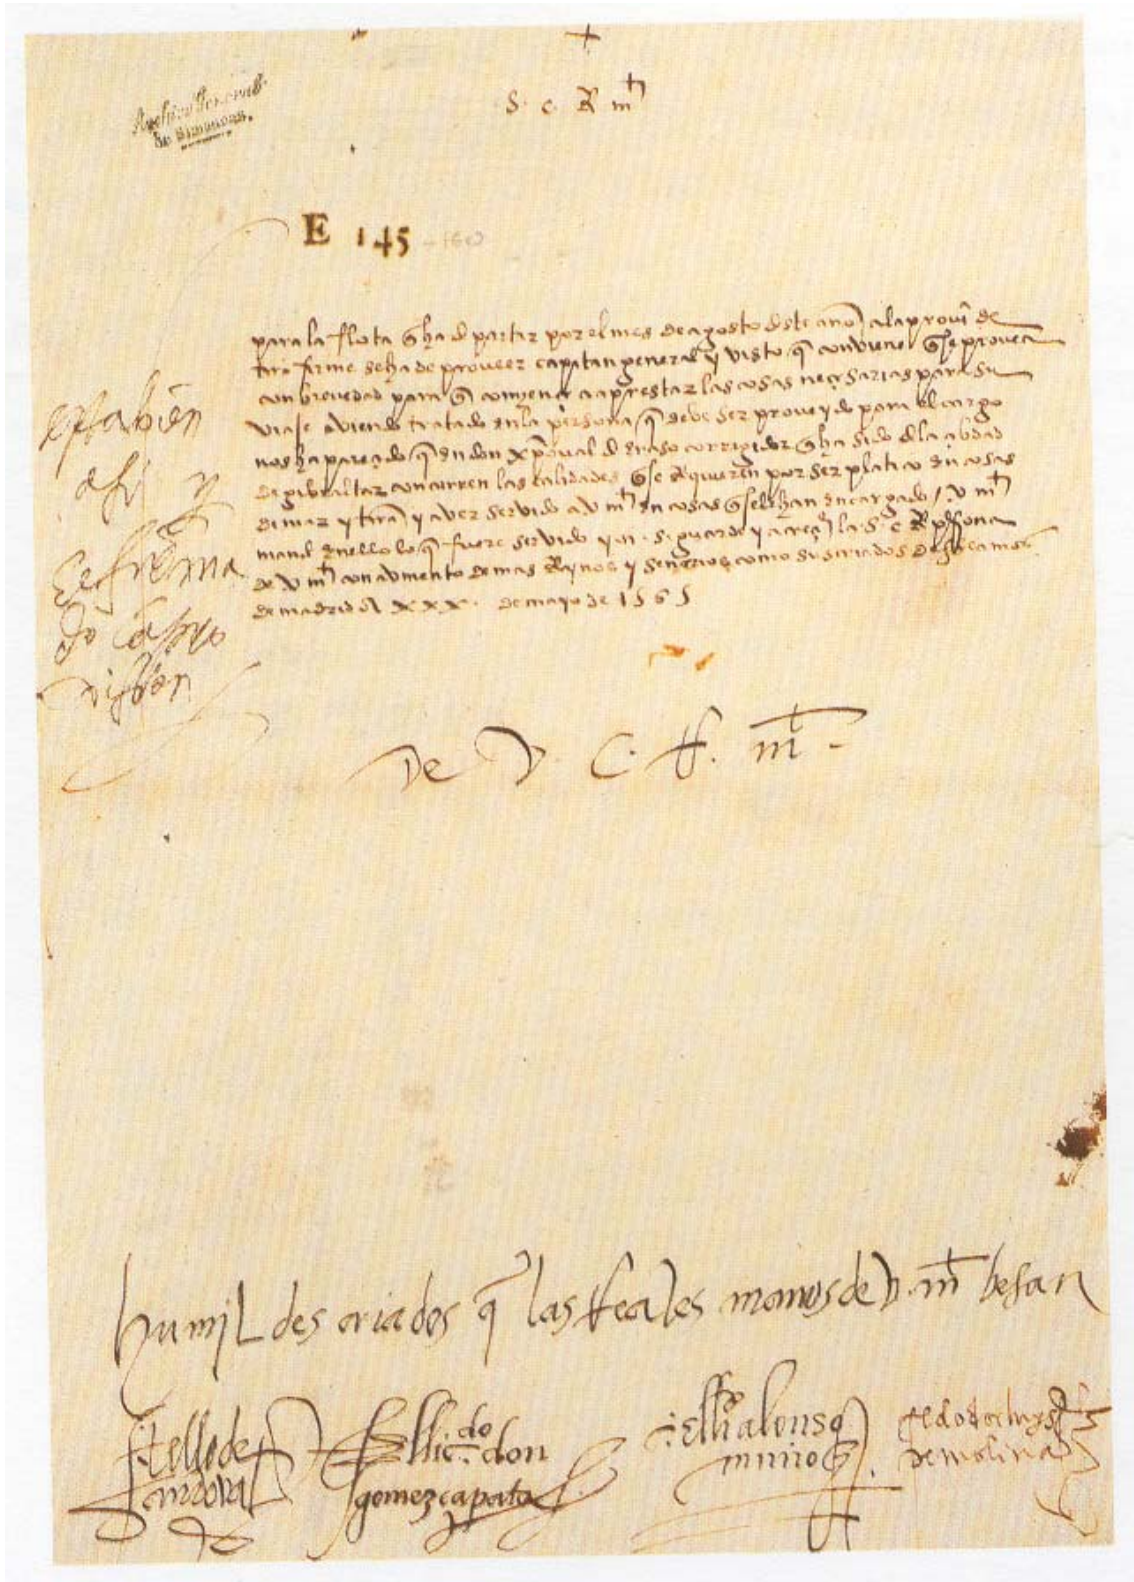 +
S. c. R mt
Archivo General
de Simancas.
E 145 - 160
para la flota q̃ ha d partir por el mes de agosto dste año a la provi͂ de
trã firme se ha de proveer capitan general y visto q̃ conviene q̃ se provea
con brevedad para q̃ comience a aprestar las cosas neçesarias para su
viaje aviendo tratado en la persona q̃ debe ser proveydo para el cargo
nos ha pareçido q̃ en don xp̃oval d eraso corregidor q̃ ha sido d la çibdad
de gibraltar concurren las calidades q̃ se Requieren por ser platico en cosas
de mar y trã y aver servido a v mt en cosas q̃ se le han encargado / v mt
mande en ello lo q̃ fuere servido y n. s. guarde y acreçe la S. c R persona
de v mt con aumento de mas Reynos y señorios como sus criados deseamos
de madrid A xxx. de mayo de 1565
esta bien
asi y
De V. C. R. mt -
humjldes criados q̃ las Reales manos de V. mt besan
tello de
sandoval
El licdo. don
gomez çapata
: el lido alonso
munoz
el doctor luys
de molina